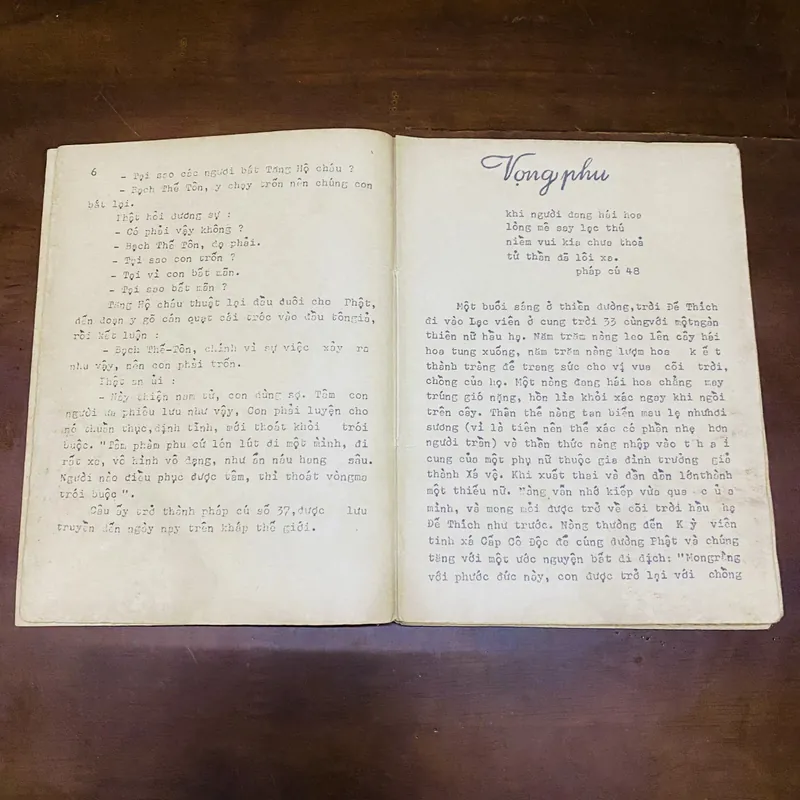 6
- Tại sao các người bắt Tăng Hộ cháu ?
- Bạch Thế Tôn, y chạy trốn nên chúng con
bắt lại.
Phật hỏi đương sự :
- Có phải vậy không ?
- Bạch Thế Tôn, dạ phải.
- Tại sao con trốn ?
- Tại vì con bất mãn.
- Tại sao bất mãn ?
Tăng Hộ cháu thuật lại đầu đuôi cho Phật,
đến đoạn y gõ cán quạt cái tróc vào đầu tôngiả,
rồi kết luận :
- Bạch Thế-Tôn, chính vì sự việc xảy ra
như vậy, nên con phải trốn.
Phật an ủi :
- Này thiện nam tử, con đừng sợ. Tâm con
người ưa phiêu lưu như vậy. Con phải luyện cho
nó thuần thục,định tỉnh, mới thoát khỏi trói
buộc. "Tâm phàm phu cứ lén lút đi một mình, đi
rất xa, vô hình vô dạng, như ẩn náu hang sâu.
Người nào điều phục được tâm, thì thoát vòngma
trói buộc ".
Câu ấy trở thành pháp cú số 37,được lưu
truyền đến ngày nay trên khắp thế giới.
Vọng phu
khi người đang hái hoa
lòng mê say lạc thú
niềm vui kia chưa thoả
tử thần đã lôi xa.
pháp cú 48
Một buổi sáng ở thiên đường,trời Đế Thích
đi vào Lạc viên ở cung trời 33 cùngvới mộtngàn
thiên nữ hầu hạ. Năm trăm nàng leo lên cây hái
hoa tung xuống, năm trăm nàng lượm hoa kết
thành tràng để trang sức cho vị vua cõi trời,
chồng của họ. Một nàng đang hái hoa chẳng may
trúng gió nặng, hồn lìa khỏi xác ngay khi ngồi
trên cây. Thân thể nàng tan biến mau lẹ nhưhơi
sương (vì là tiên nên thể xác có phần nhẹ hơn
người trần) và thần thức nàng nhập vào thai
cung của một phụ nữ thuộc gia đình trưởng giả
thành Xá vệ. Khi xuất thai và dần dần lớnthành
một thiếu nữ. Nàng vẫn nhớ kiếp vừa qua của
mình, và mong mỏi được trở về cõi trời hầu hạ
Đế Thích như trước. Nàng thường đến Kỳ viên
tinh xá Cấp Cô Độc để cúng dường Phật và chúng
tăng với một ước nguyện bất di dịch: "Mongrằng
với phước đức này, con được trở lại với chồng